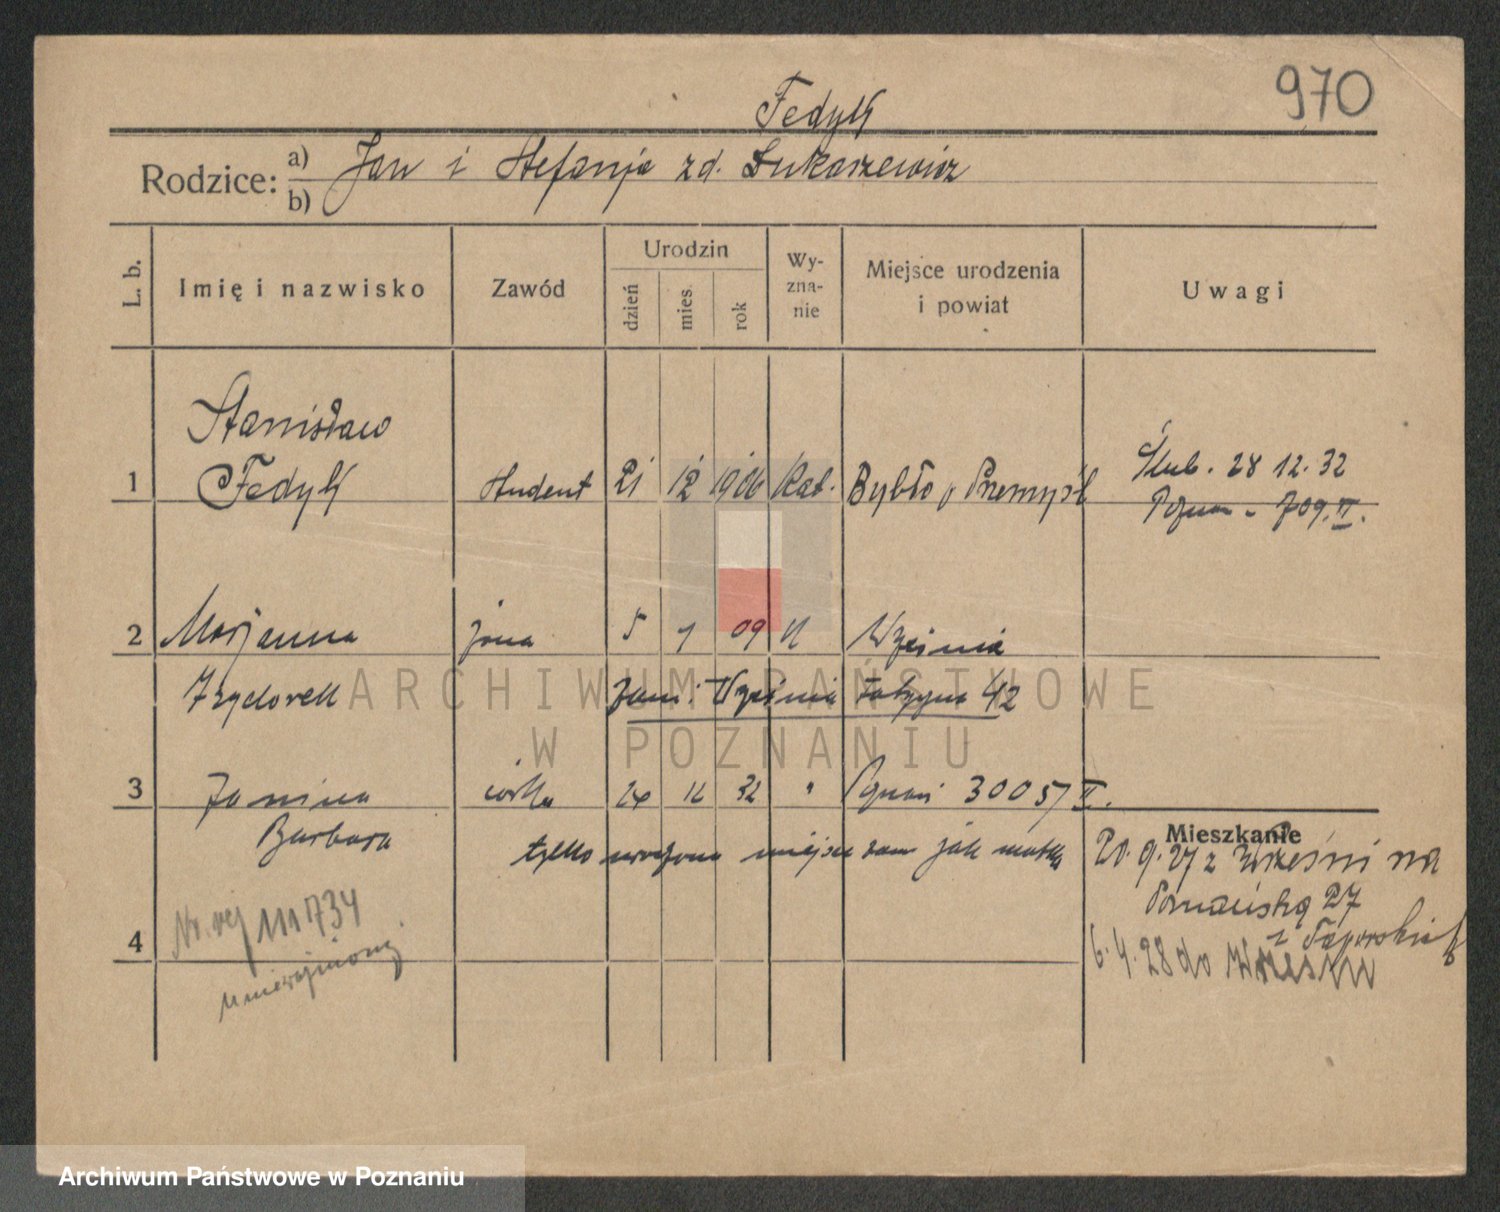 970
Fedyk
Rodzice: a) b) Jan i Stefanja zd. Łukaszewicz
L. b.
Imię i nazwisko
Zawód
Urodzin
dzień
mies
rok
Wy-
zna-
nie
Miejsce urodzenia
i powiat
Uwagi
Stanisław
1 Fedyk student 21 12 1906 Kat. Bybło p Przemyśl
Ślub. 28 12. 32
Pozna - 709. II.
2 Marjanna żona 5 1 09 Września
Izydorek zam. Września 42
3 Janina córka 24 12 32 " Poznań 3005/II.
Barbara tylko urodzona miejsce zam jak matka
Mieszkanie
20. 9. 27 z Wrześni na
Poznańską 27
z Taporskich
6. 4. 28 do Wrześni
Nr. rej 111734
unieważniony.
4
ARCHIWUM PAŃSTWOWE
W POZNANIU
Archiwum Państwowe w Poznaniu